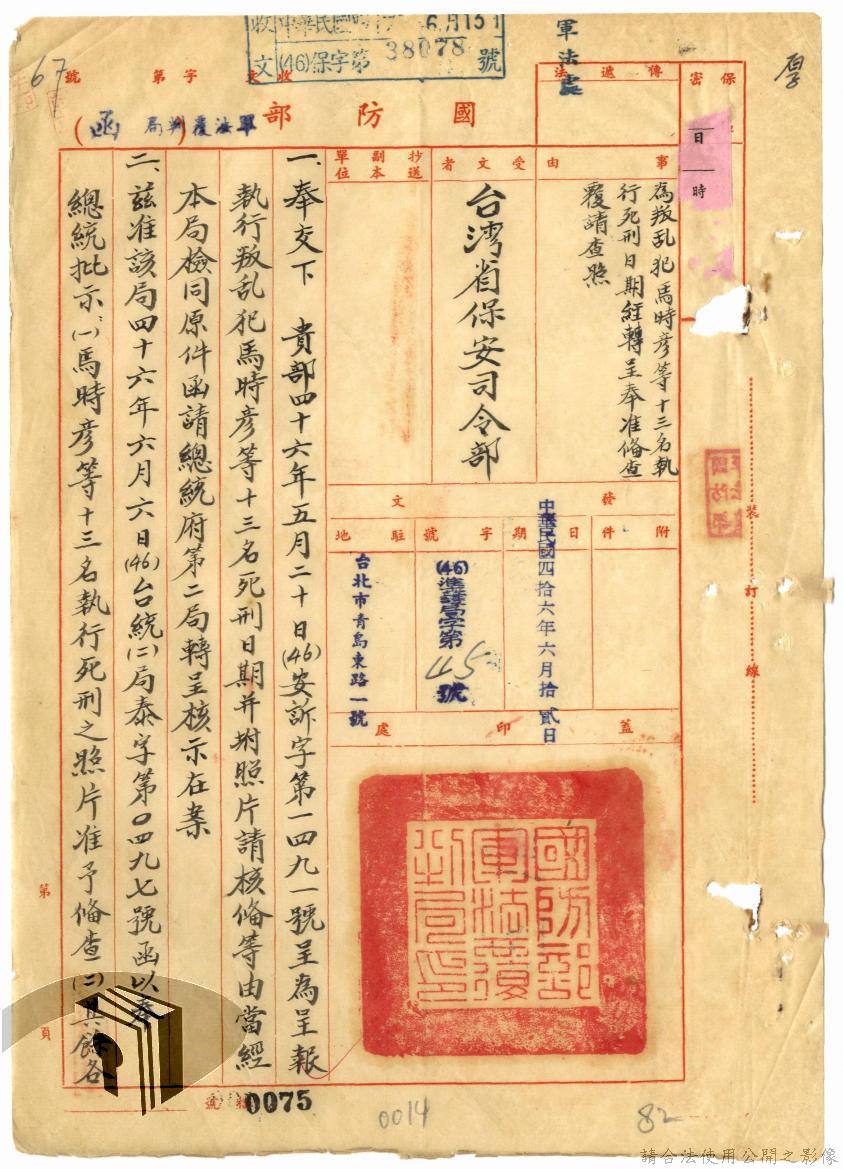 收文
中華民國
6月13
(46)保字第38078號
軍法處
厚
67
收文 字第 號
傳遞法
保密
日
時
國防部(軍法覆判局)函
事由
為叛乱犯馬時彦等十三名執
行死刑日期經轉呈奉准俻查
覆請查照
受文者
台湾省保安司令部
抄送副本單位
發文
附件
日期
中華民國四拾六年六月拾貳日
字號
(46)準護局字第45號
駐地
台北市青島東路一號
蓋印處
國防部軍法覆判局印
裝訂線
一、奉交下 貴部四十六年五月二十日(46)安訴字第一四九一號呈為呈報
執行叛乱犯馬時彦等十三名死刑日期并附照片請核俻等由當經
本局檢同原件函請總統府第二局轉呈核示在案
二、茲准該局四十六年六月六日(46)台統(二)局泰字第0四九七號函以奉
總統批示:(一)馬時彦等十三名執行死刑之照片准予俻查(二)其餘各
第 頁
號
0075
0014
82
請合法使用公開之影像